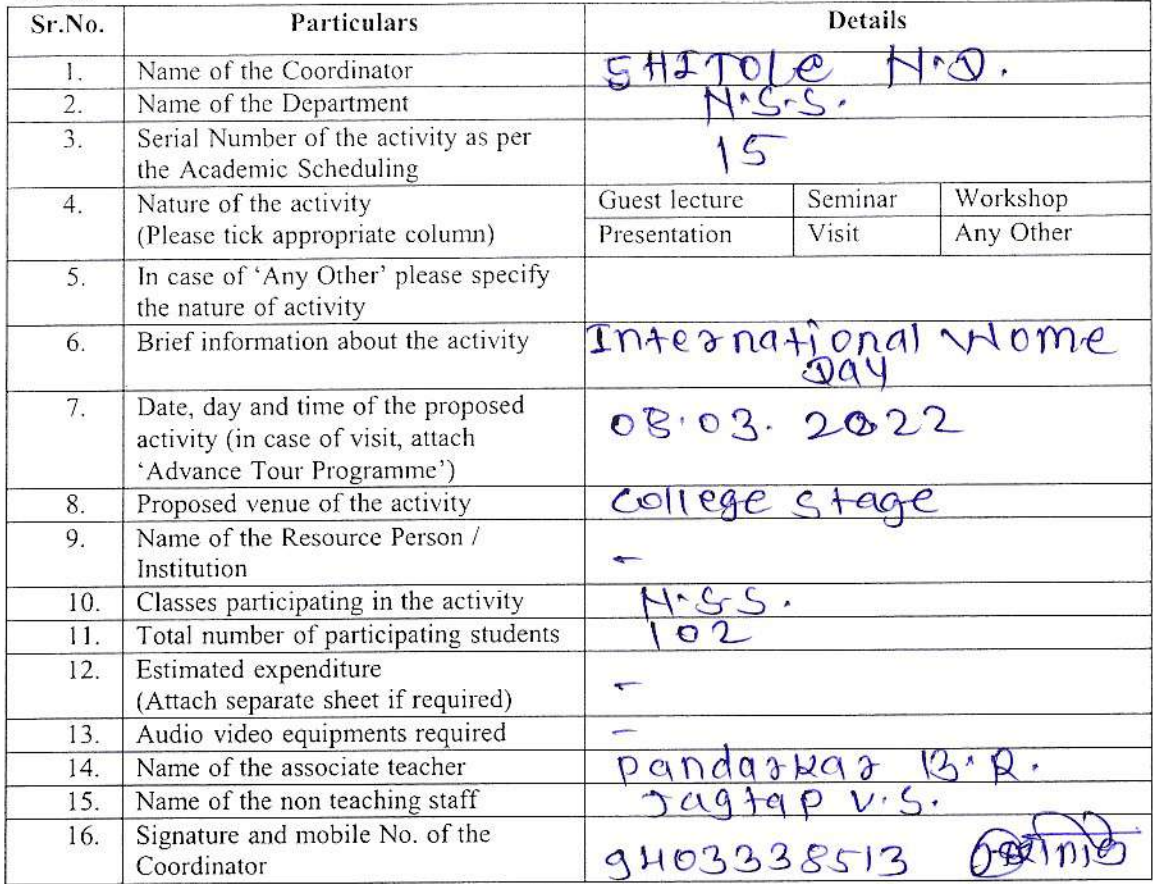 Sr.No. Particulars Details
1. Name of the Coordinator SHITOLe N.D.
2. Name of the Department N.S.S.
3. Serial Number of the activity as per
the Academic Scheduling 15
4. Nature of the activity
(Please tick appropriate column)
Guest lecture Seminar Workshop
Presentation Visit Any Other
5. In case of ‘Any Other’ please specify
the nature of activity
6. Brief information about the activity International Wome
Day
7. Date, day and time of the proposed
activity (in case of visit, attach
‘Advance Tour Programme’) 08.03.2022
8. Proposed venue of the activity College stage
9. Name of the Resource Person /
Institution -
10. Classes participating in the activity N.S.S.
11. Total number of participating students 102
12. Estimated expenditure
(Attach separate sheet if required) -
13. Audio video equipments required -
14. Name of the associate teacher Pandarkar B.R.
15. Name of the non teaching staff Jagtap V.S.
16. Signature and mobile No. of the
Coordinator 9403338513